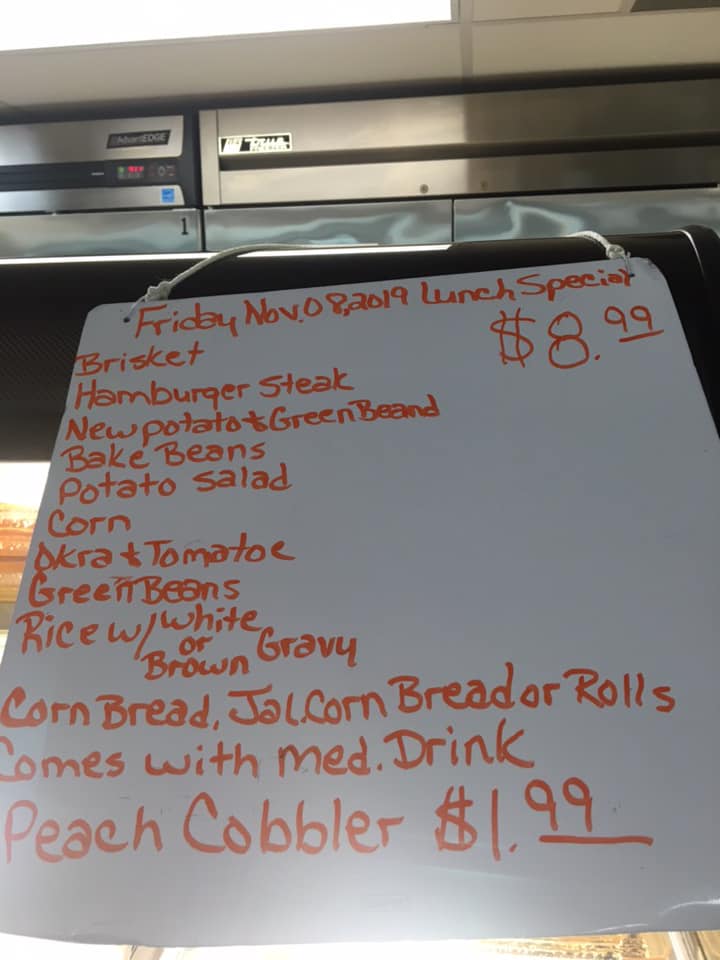 AdvantEDGE
True
1
Friday Nov.08,2019 Lunch Special
$8.99
Brisket
Hamburger Steak
New potato & Green Beand
Bake Beans
Potato Salad
Corn
Okra & Tomatoe
Green Beans
Rice w/ white
or
Brown Gravy
Corn Bread, Jal.Corn Bread or Rolls
Comes with med. Drink
Peach Cobbler $1.99